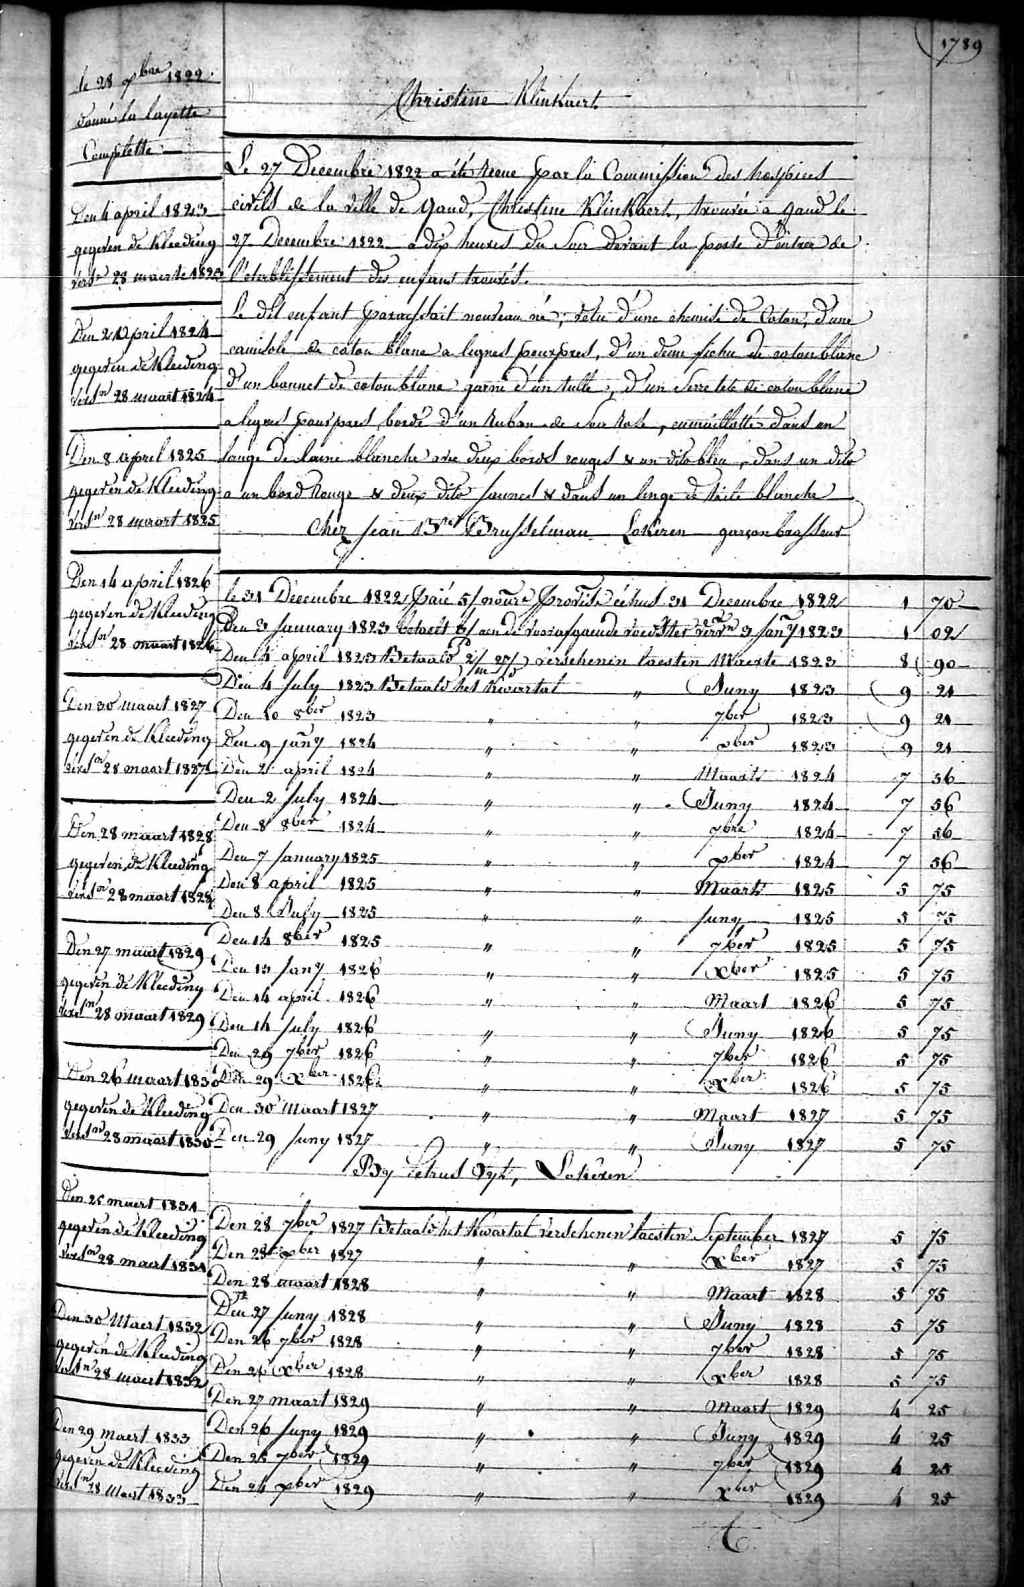 1789
Christine Klinkaert
le 28 xbre 1822
donné la layette
Complette
Den 4 april 1823
gegeven de Kleeding
versn 28 maerte 1823
Den 2 April 1824
gegeven de Kleeding
versn 28 maart 1824
Den 8 april 1825
gegeven de Kleeding
versn 28 maart 1825
Den 14 april 1826
gegeven de Kleeding
versn 28 maart 1826
Den 30 maart 1827
gegeven de Kleeding
versn 28 maart 1827
Den 28 maart 1828
gegeven de Kleeding
versn 28 maart 1828
Den 27 maart 1829
gegeven de Kleeding
versn 28 maart 1829
Den 26 maart 1830
gegeven de Kleeding
versn 28 maart 1830
Den 25 maert 1831
gegeven de Kleeding
versn 28 maert 1831
Den 30 Maert 1832
gegeven de Kleeding
versn 28 maert 1832
Den 29 maert 1833
gegeven de Kleeding
versn 28 Maert 1833
Le 27 Decembre 1822 a été recue par la Commission des hospices
civils de la ville de Gand, Christine Klinkaert, trouvée a gand le
27 Decembre 1822 a dix heures du Soir devant la porte d'entrée de
l'etablissement des enfans trouvés.
Le dit enfant paraissait nouveau né, vetu d'une chemise de coton, d'une
camisole de coton blanc a lignes pourpres, d'un demi fichu de coton blanc
d'un bonnet de coton blanc garni d'un tulle, d'un Serre tete de coton blanc
a lignes pourpres bordé d'un Ruban de Soie Rose, emmaillotté dans un
lange de laine blanche avec deux bords rouges & un dito bleu, dans un dito
a un bord Rouge & deux dito jaunes & dans un linge de toile blanche
Chez Jean Bte Brusselman Lokeren garçon brasseur
le 31 Decembre 1822 Paié 5/ nourre Provise échus 31 Decembre 1822 1 70
Den 3 January 1823 aen de voorafgaende voedster versn 3 Jany 1823 1 02
Den 4 april 1823 Betaald 2/m 27/d verschenen laesten Maerte 1823 8 90
Den 4 July 1823 Betaald het Kwartal " Juny 1823 9 21
Den 10 8ber 1823 " " 7ber 1823 9 21
Den 9 jany 1824 " " xber 1823 9 21
Den 2 april 1824 " " Maart 1824 7 56
Den 2 July 1824 " " Juny 1824 7 56
Den 8 8ber 1824 " " 7bre 1824 7 56
Den 7 January 1825 " " xber 1824 7 56
Den 8 april 1825 " " Maart 1825 5 75
Den 8 July 1825 " " juny 1825 5 75
Den 14 8ber 1825 " " 7ber 1825 5 75
Den 13 Jany 1826 " " xber 1825 5 75
Den 14 april 1826 " " Maart 1826 5 75
Den 14 July 1826 " " Juny 1826 5 75
Den 29 7ber 1826 " " 7ber 1826 5 75
Den 29 xber 1826 " " xber 1826 5 75
Den 30 Maart 1827 " " Maart 1827 5 75
Den 29 Juny 1827 " " Juny 1827 5 75
By Petrus Lokeren
Den 28 7ber 1827 Betaald het Kwartal verschenen laesten September 1827 5 75
Den 28 xber 1827 " " xber 1827 5 75
Den 28 maart 1828 " " Maart 1828 5 75
Den 27 Juny 1828 " " Juny 1828 5 75
Den 26 7ber 1828 " " 7ber 1828 5 75
Den 26 xber 1828 " " xber 1828 5 75
Den 27 maart 1829 " " Maart 1829 4 25
Den 26 Juny 1829 " " Juny 1829 4 25
Den 25 7ber 1829 " " 7ber 1829 4 25
Den 24 xber 1829 " " xber 1829 4 25